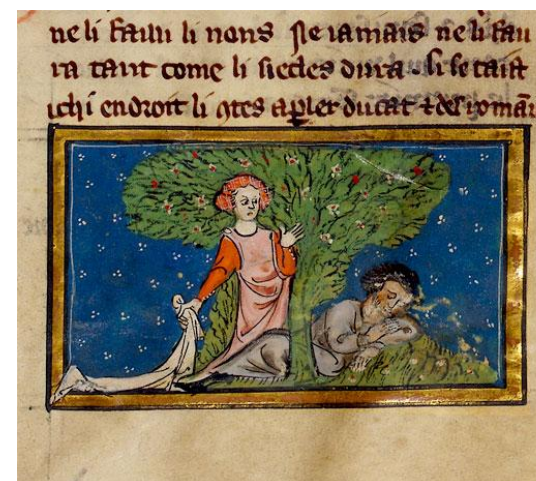 ne li failli li nons ne iamais ne li fau
ra tant come li siecles dura . si se taist
ichi endroit li ꝯtes a ꝑler du cat ⁊ des romaī